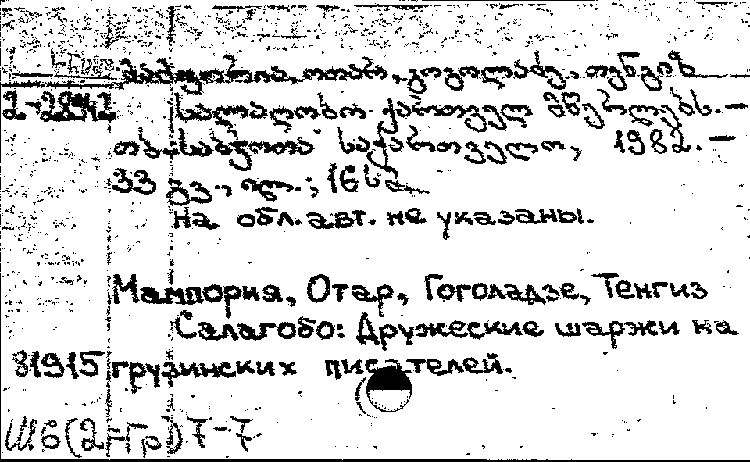 მამფორია, ოთარ, გოგოლაძე, თენგიზ
სალაღობო ქართველ მწერლებს. —
თბ.: საბჭოთა საქართველო, 1982. —
33 გვ., ილ.; 16 სმ
На обл. авт. не указаны.
Мампория, Отар, Гоголадзе, Тенгиз
Салагобо: Дружеские шаржи на
81915 грузинских писателей.
Ш6(2=Гр)7-7